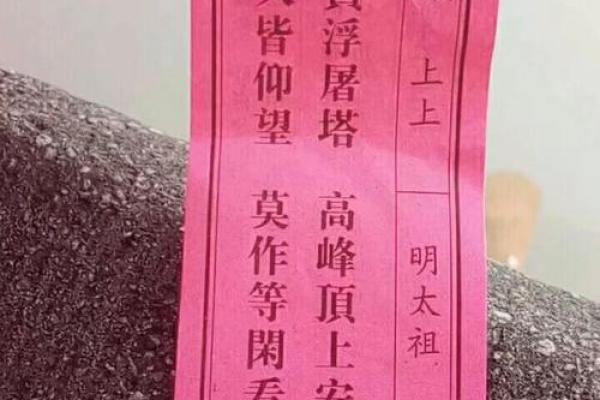 上上 明太祖
浮屠塔 高峰頂上安
皆仰望 莫作等閑看